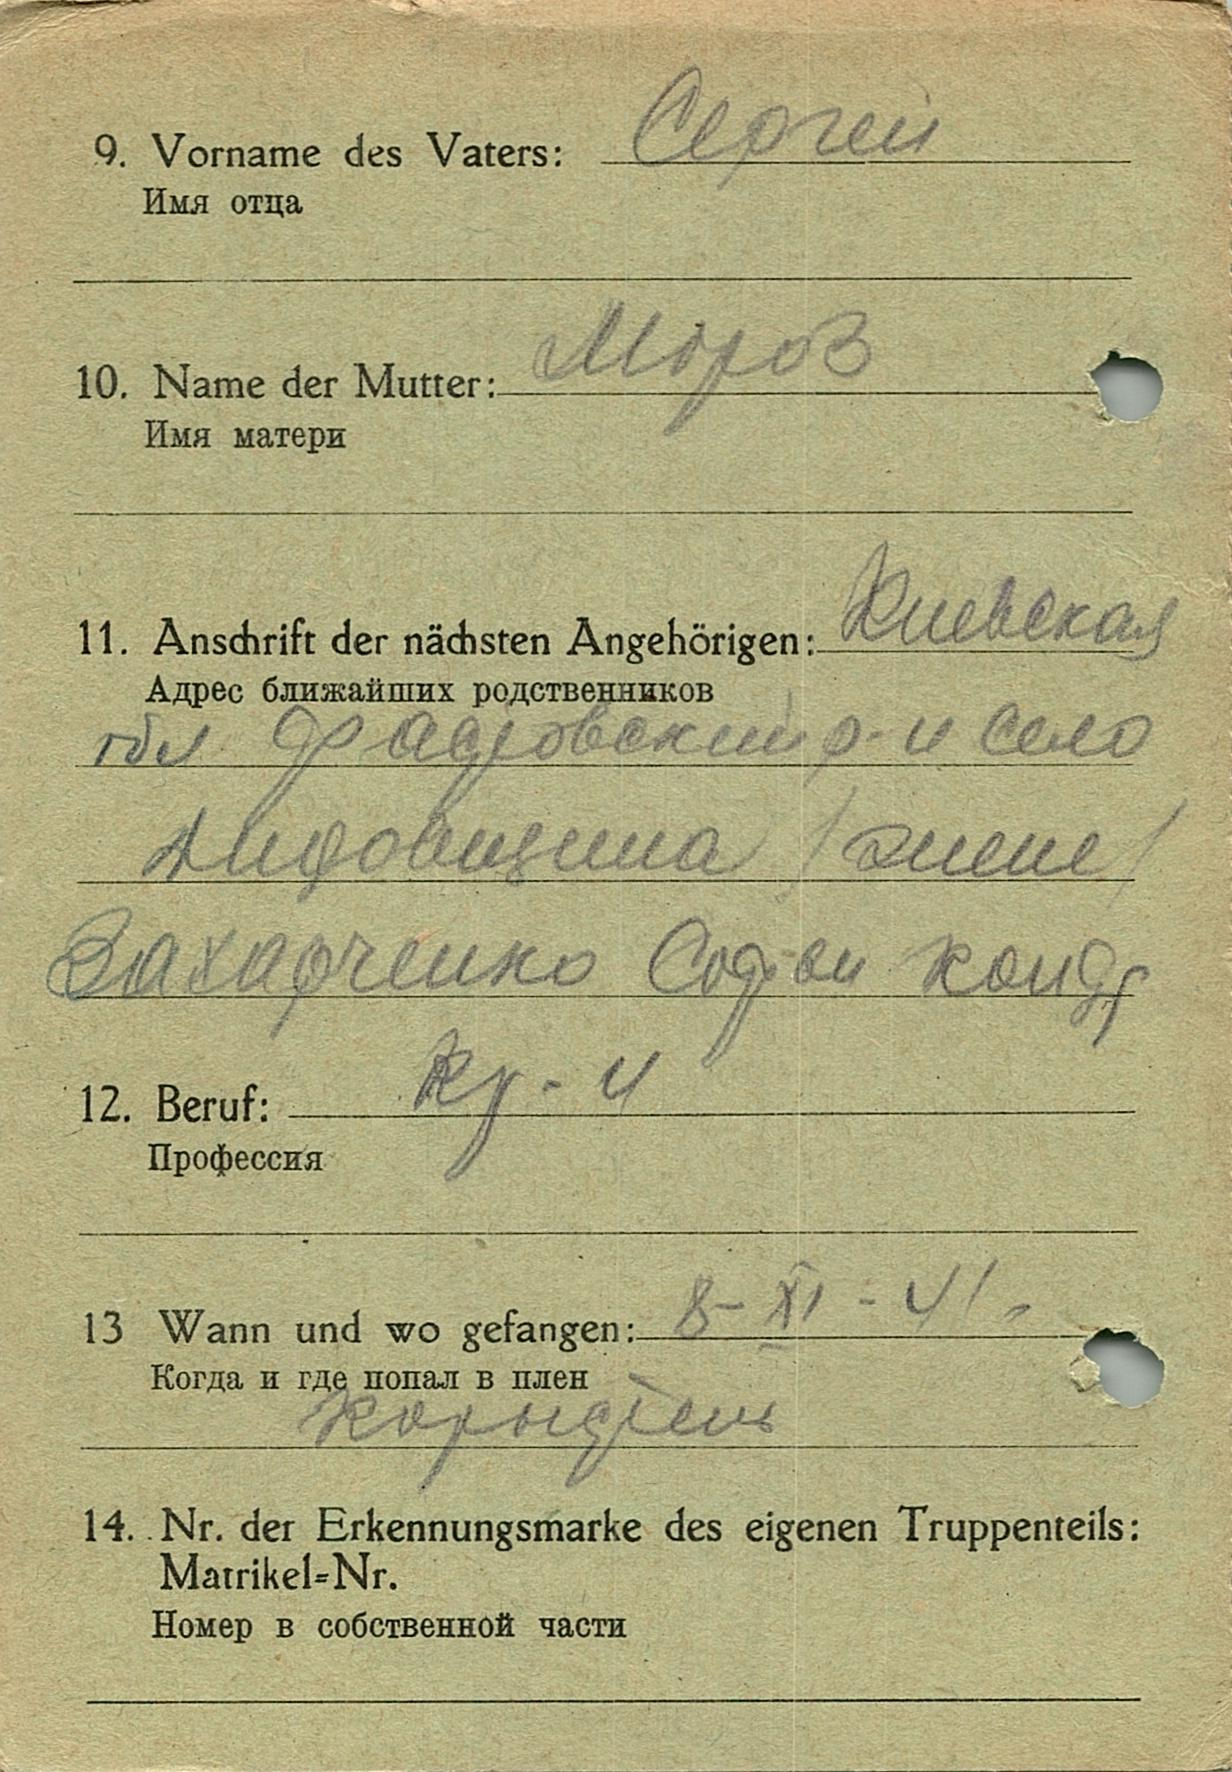 9. Vorname des Vaters: Сергей
Имя отца
10. Name der Mutter: Мороз
Имя матери
11. Anschrift der nächsten Angehörigen: Киевская
Адрес ближайших родственников
обл Фастовский р-н село
Дидовщина /жене/
Захарченко Софьи Конд
12. Beruf: Кр-н
Профессия
13 Wann und wo gefangen: 8-XI-41.
Когда и где попал в плен
14. Nr. der Erkennungsmarke des eigenen Truppenteils:
Matrikel=Nr.
Номер в собственной части